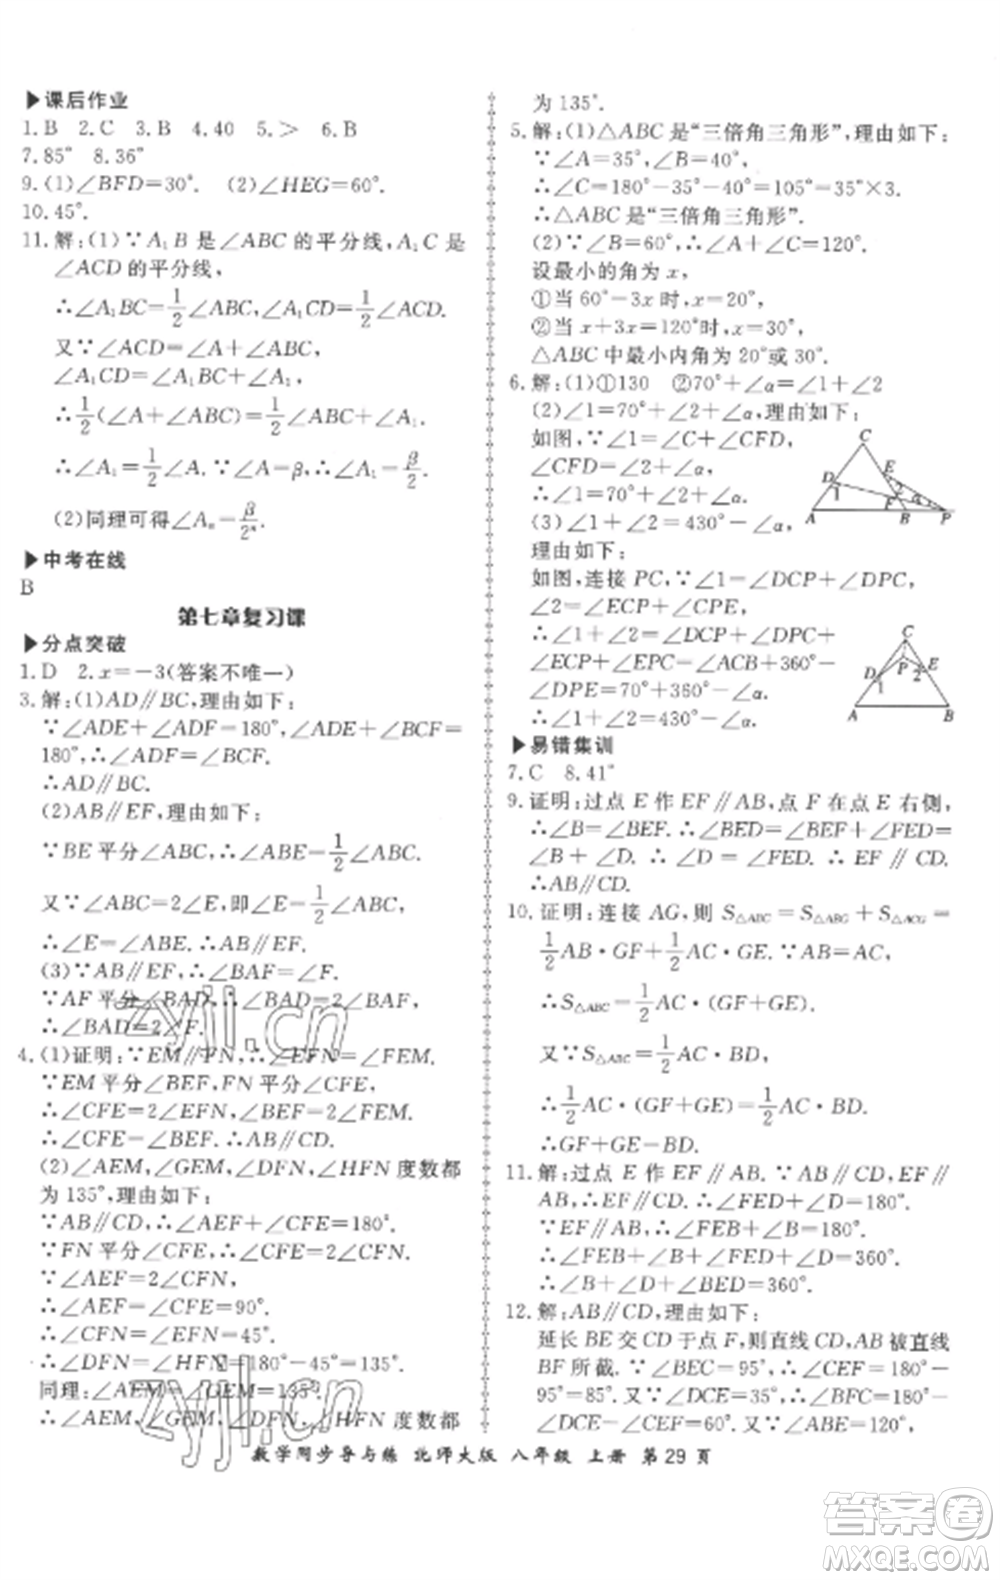 ▶课后作业
1.B 2.C 3.B 4.40 5.> 6.B
7.85° 8.36°
9.(1)∠BFD=30°. (2)∠HEG=60°.
10.45°.
11.解:(1)∵A₁B 是∠ABC 的平分线,A₁C 是
∠ACD 的平分线,
∴∠A₁BC=1/2∠ABC,∠A₁CD=1/2∠ACD.
又∵∠ACD=∠A+∠ABC,
∠A₁CD=∠A₁BC+∠A₁,
∴1/2(∠A+∠ABC)=1/2∠ABC+∠A₁.
∴∠A₁=1/2∠A.∵∠A=β,∴∠A₁=β/2.
(2)同理可得∠Aₙ=β/2ⁿ.
▶中考在线
B
第七章复习课
▶分点突破
1.D 2.x=-3(答案不唯一)
3.解:(1)AD∥BC,理由如下:
∵∠ADE+∠ADF=180°,∠ADE+∠BCF=
180°,∴∠ADF=∠BCF.
∴AD∥BC.
(2)AB∥EF,理由如下:
∵BE平分∠ABC,∴∠ABE=1/2∠ABC.
又∵∠ABC=2∠E,即∠E=1/2∠ABC,
∴∠E=∠ABE.∴AB∥EF.
(3)∵AB∥EF,∴∠BAF=∠F.
∵AF平分∠BAD,∴∠BAF=1/2∠BAD.
∴∠BAD=2∠F.
4.(1)证明:∵EM∥FN,∴∠EFN=∠FEM.
∵EM平分∠BEF,FN平分∠CFE,
∴∠CFE=2∠EFN,∠BEF=2∠FEM.
∴∠CFE=∠BEF.∴AB∥CD.
(2)∠AEM,∠GEM,∠DFN,∠HFN 度数都
为135°,理由如下:
∵AB∥CD,∴∠AEF+∠CFE=180°.
∵FN平分∠CFE,∴∠CFE=2∠CFN.
∵∠AEF=2∠CFN,
∴∠AEF=∠CFE=90°.
∴∠CFN=∠EFN=45°.
∴∠DFN=∠HFN=180°-45°=135°.
同理:∠AEM=∠GEM=135°.
∴∠AEM,∠GEM,∠DFN,∠HFN 度数都
为135°.
5.解:(1)△ABC是“三倍角三角形”,理由如下:
∵∠A=35°,∠B=40°,
∴∠C=180°-35°-40°=105°=35°×3.
∴△ABC是“三倍角三角形”.
(2)∵∠B=60°,∴∠A+∠C=120°.
设最小的角为 x,
①当 60°=3x时,x=20°,
②当 x+3x=120°时,x=30°,
△ABC中最小内角为 20°或 30°.
6.解:(1)①130 ②70°+∠α=∠1+∠2
(2)∠1=70°+∠2+∠α,理由如下:
如图,∵∠1=∠C+∠CFD,
∠CFD=∠2+∠α,
∴∠1=70°+∠2+∠α.
(3)∠1+∠2=430°-∠α,
理由如下:
如图,连接 PC,∵∠1=∠DCP+∠CPD,
∠2=∠ECP+∠CPE,
∴∠1+∠2=∠DCP+∠CPD+
∠ECP+∠CPE=∠ACB+360°-
∠DPE=70°+360°-∠α.
∴∠1+∠2=430°-∠α.
C
D
E
1
2
F
α
A
B
P
C
D
P
E
1
2
A
B
▶易错集训
7.C 8.41°
9.证明:过点 E 作 EF∥AB,点 F 在点 E 右侧,
∴∠B=∠BEF.∴∠BED=∠BEF+∠FED=
∠B+∠D.∴∠D=∠FED.∴EF∥CD.
∴AB∥CD.
10.证明:连接 AG,则 S△ABC=S△ABG+S△ACG=
1/2AB·GF+1/2AC·GE.∵AB=AC,
∴S△ABC=1/2AC·(GF+GE).
又∵S△ABC=1/2AC·BD,
∴1/2AC·(GF+GE)=1/2AC·BD.
∴GF+GE=BD.
11.解:过点 E 作 EF∥AB.∵AB∥CD,EF∥
AB,∴EF∥CD.∴∠FED+∠D=180°.
∵EF∥AB,∴∠B+∠BEF=180°.
∴∠FED+∠D+∠B+∠BEF=360°.
∴∠B+∠D+∠BED=360°.
12.解:AB∥CD,理由如下:
延长 BE 交 CD 于点 F,则直线 CD,AB 被直线
BF所截.∵∠BEC=95°,∴∠CEF=180°-
95°=85°.又∵∠DCE=35°,∴∠BFC=180°-
∠DCE-∠CEF=60°.又∵∠ABE=120°,
数学同步导与练 北师大版 八年级 上册 第29页
zyjl.cn
zyjl.cn
答案圈
MXQE.COM